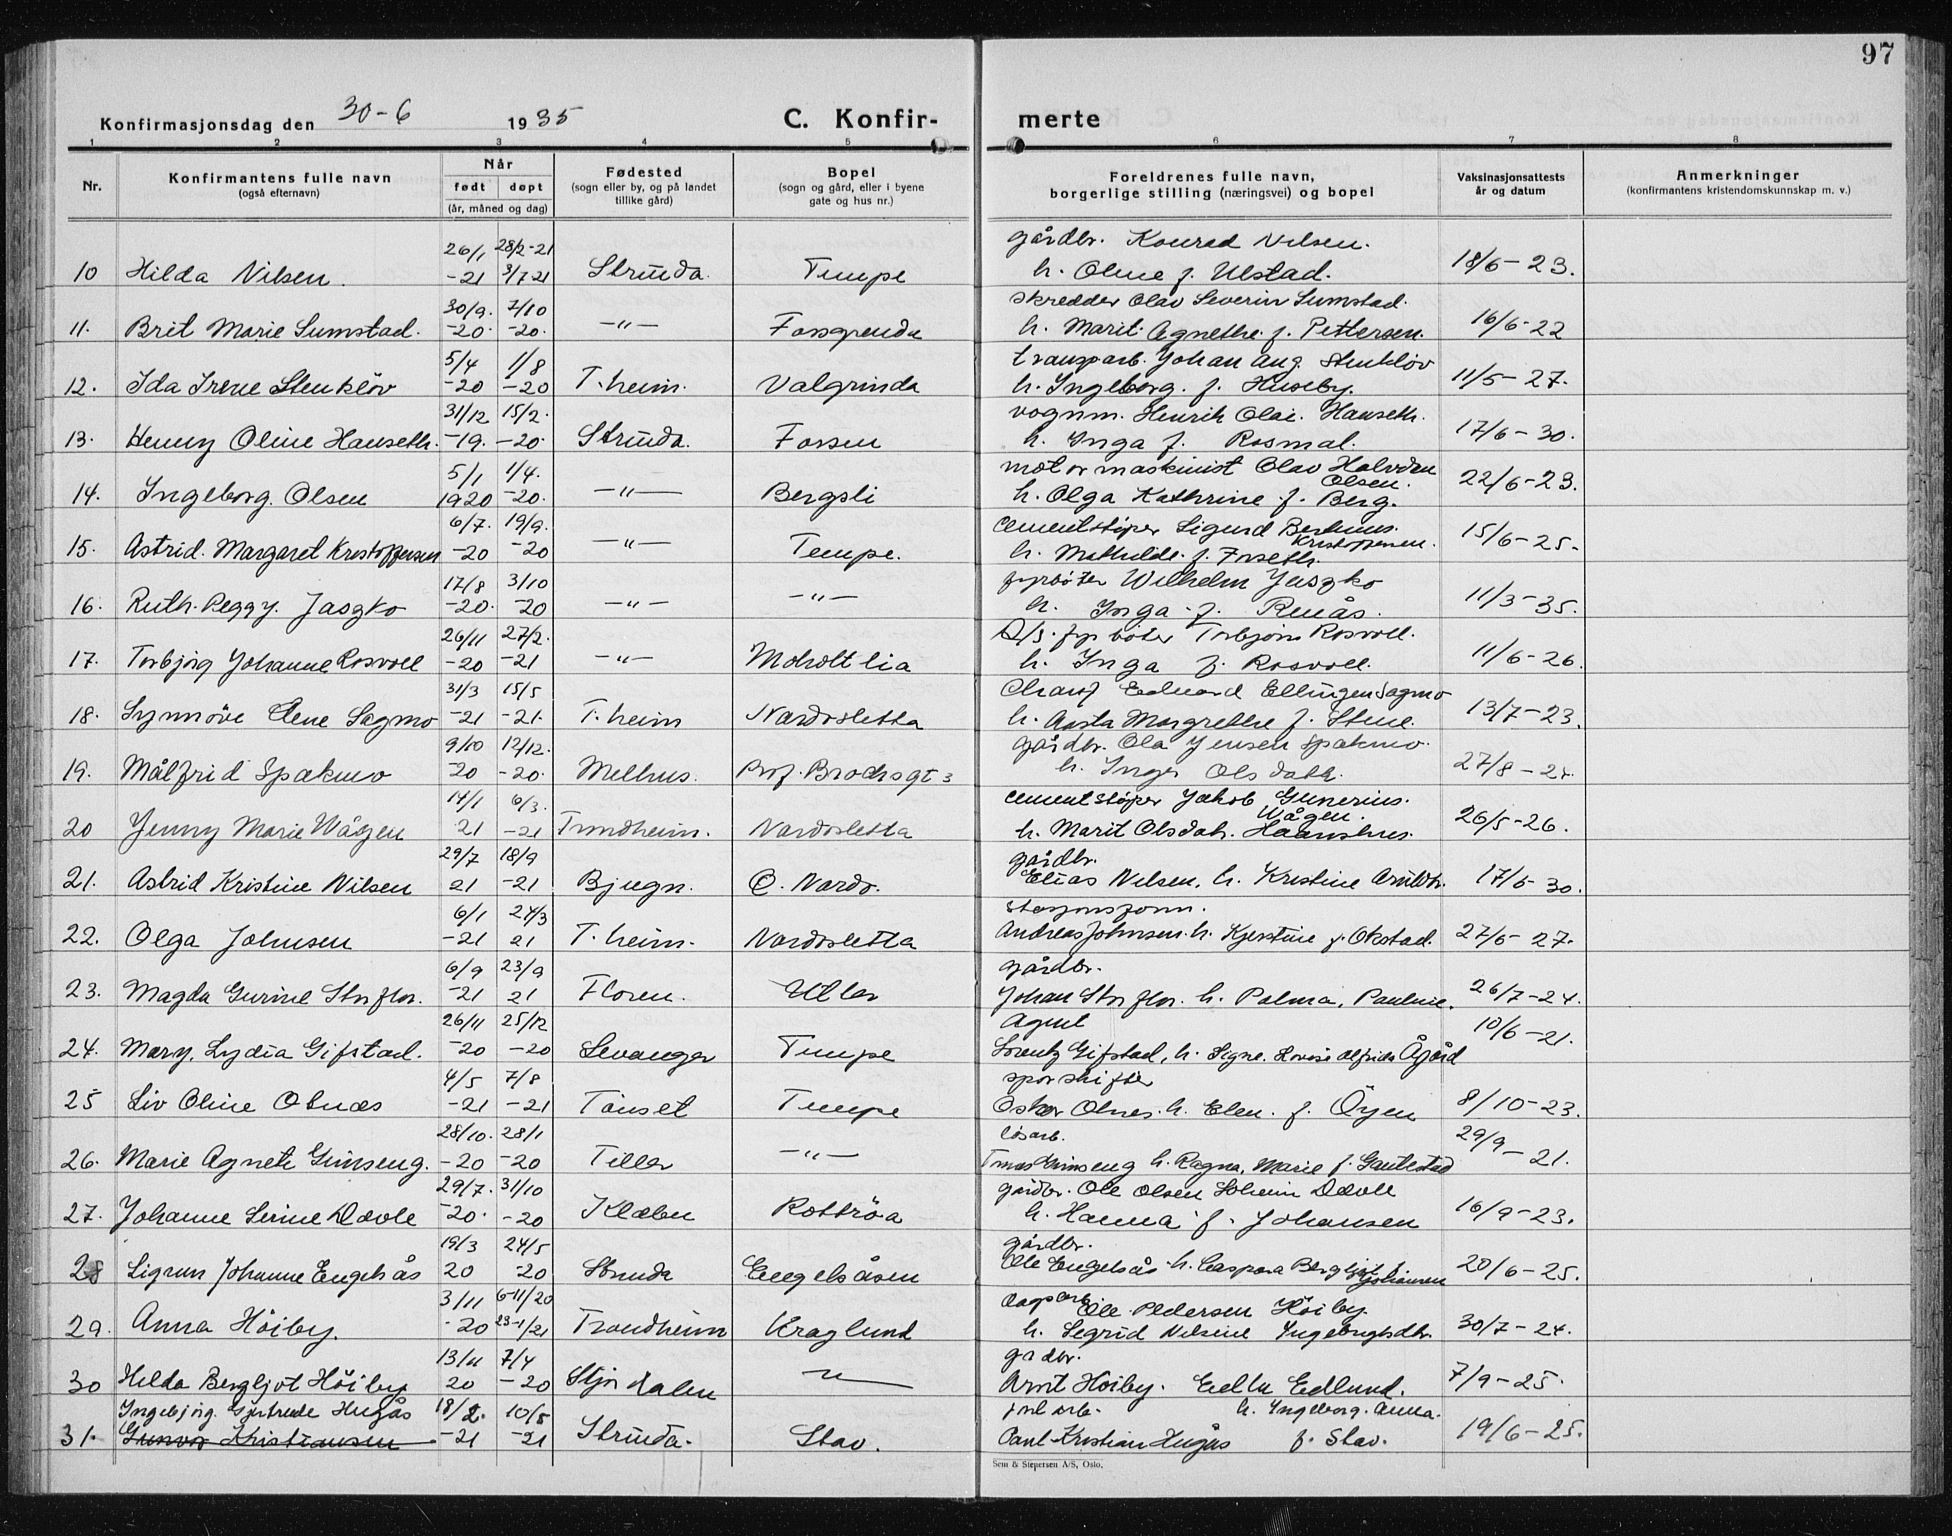 97
Konfirmasjonsdag den 30-6 1935 C. Konfir- merte
1 2 3 4 5 6 7 8
Nr. Konfirmantens fulle navn (også efternavn) Når født døpt (år, måned og dag) Fødested (sogn eller by, og på landet tillike gård) Bopel (sogn og gård, eller i byene gate og hus nr.) Foreldrenes fulle navn, borgerlige stilling (næringsvei) og bopel Vaksinasjonsattests år og datum Anmerkninger (konfirmantens kristendomskunnskap m. v.)
26/1 28/2-21 gårdbr. Konrad Nilsen.
10 Hilda Nilsen. -21 3/7-21 Strinda. Tempe h. Oline f. Ulstad. 18/6-23.
30/9. 7/10 skredder Olav Severin Sumstad.
11. Brit Marie Sumstad. -20. -20. -"- Fossgrenda h. Marit Agnethe f. Pettersen. 16/6-22
5/4 1/8 transparb. Johan Aug. Stenkløv
12. Ida Irene Stenkløv -20 -20 T.heim. Valgrinda h. Ingeborg. f. Huseby. 11/5-27.
31/12 15/2. vognm. Henrik Olai. Hanseth.
13. Henny Oline Hanseth. -19. -20. Strinda. Forsen h. Inga f. Rosmal. 17/6-30.
5/1 1/4. motormaskinist Olav Halvdan Olsen.
14. Ingeborg. Olsen 1920 -20. -"- Bergsli h. Olga Kathrine f. Berg. 22/6-23.
6/7. 19/9. cementstøper Sigurd Berhnus. Kristoffersen.
15. Astrid. Margaret Kristoffersen -20 -20 -"- Tempe. h. Mathilde. f. Forseth. 15/6-25.
17/8 3/10 fyrbøter Wilhelm Jaszko
16. Ruth. Peggy. Jaszko -20. -20 -"- -"- h. Inga f. Renås. 11/3-35.
26/11 27/2. fyrbøter Torbjørn Rosvoll.
17. Torbjørg Johanne Rosvoll -20 -21 -"- Moholtlia h. Inga f. Rosvoll. 11/6-26.
31/3 15/5 Chauf Edvard Ellingsen Sagmo
18. Synnöve Elene Sagmo -21 -21. T.heim Nardosletta h. Aasta Margrethe f. Stene. 13/7-23.
9/10 12/12. gårdbr. Ola Jensen Spakmo.
19. Målfrid Spakmo 20 -20. Melhus. Prof. Brochsgt 3 h. Inger Olsdath. 27/8-24.
14/1 6/3. cementstøper Jakob Gunerius. Vågen.
20 Jenny Marie Wågen 21 -21 Trondheim. Nardosletta h. Marit Olsdat. Haanshus. 26/5-26.
29/7 18/9 gårdbr.
21. Astrid Kristine Nilsen 21 -21 Bjugn. Ø. Nardo. Elias Nilsen, h. Kristine Arntdtr. 17/6-30.
6/1 24/3 stasjonsform.
22. Olga Johnsen -21 21 T.heim. Nardosletta Andreas Johnsen. h. Kjerstine f. Okstad. 27/6-27.
6/9 23/9 gårdbr.
23. Magda Gurine Storflor. -21 21 Floren. Uller Johan Storflor. h. Palma, Pauline. 26/7-24.
26/11 25/12 Agent
24. Mary. Lydia Gifstad. -20 -20 Levanger Tempe Lorentz Gifstad, h. Signe. Lovise Alfrida Ågård 10/6-21.
4/5 7/8 sporskifter
25 Liv Oline Olnæs -21 -21 Tönset Tempe Oskar Olnes. h. Elen. f. Öyen 8/10-23.
28/10. 28/1 løsarb.
26. Marie Agnete Grinseng. -20 -20 Tiller -"- Tomas Grinseng h. Ragna, Marie f. Gautestad 29/9-21.
29/7. 31/10 gårdbr. Ole Olsen Solheim Dævle
27. Johanne Serine Dævle -20. -20 Klæbu Rotbröa h. Hanna f. Johansen 16/9-23.
19/3 24/5 gårdbr.
28 Sigrun Johanne Engelsås 20 -20 Strinda Engelsåsen Ole Engelsås h. Caspara Bergljot f. Johansen 20/6-25.
3/11 6-11/20 dagsarb Ole Pedersen Höiby.
29. Anna Höiby. -20 23-1/21 Trondheim Kraglund h. Segrid Nilsine Ingebrigtsdtr. 30/7-24.
13/11 7/4 gadbr.
30 Hilda Bergljot Höiby 20 -20 Stjørdalen -"- Arnt Höiby. Edla Edlund. 7/9-25.
Ingebjørg. Gjertrude Hugås 18/2. 10/5 jernb arb. h. Ingeborg. Anna.
31. Gunvor Kristiansen -21 -21 Strinda. Stav. Paul Kristian Hugås f. Stav. 19/6-25.
Sem & Stenersen A/S, Oslo.